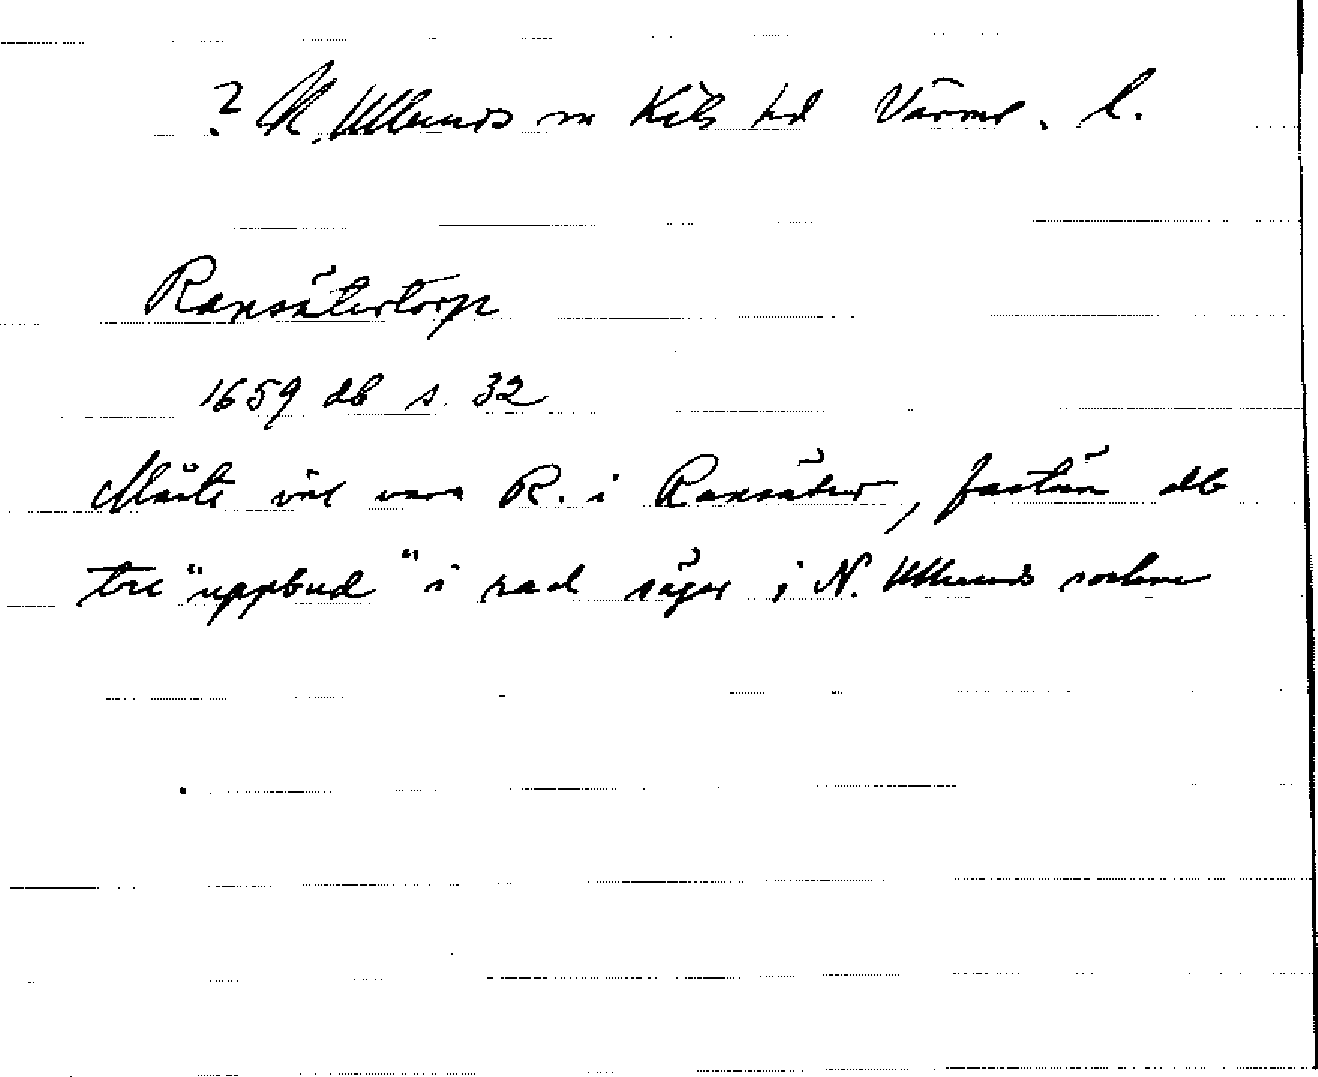 ? N. Ullerud sn Kils hd Värml. l.
Ransätertorp
1659 db s. 32
Måste väl vara R. i Ransäter, fastän db
tre "uppbud" i rad säger i N. Ulleruds socken